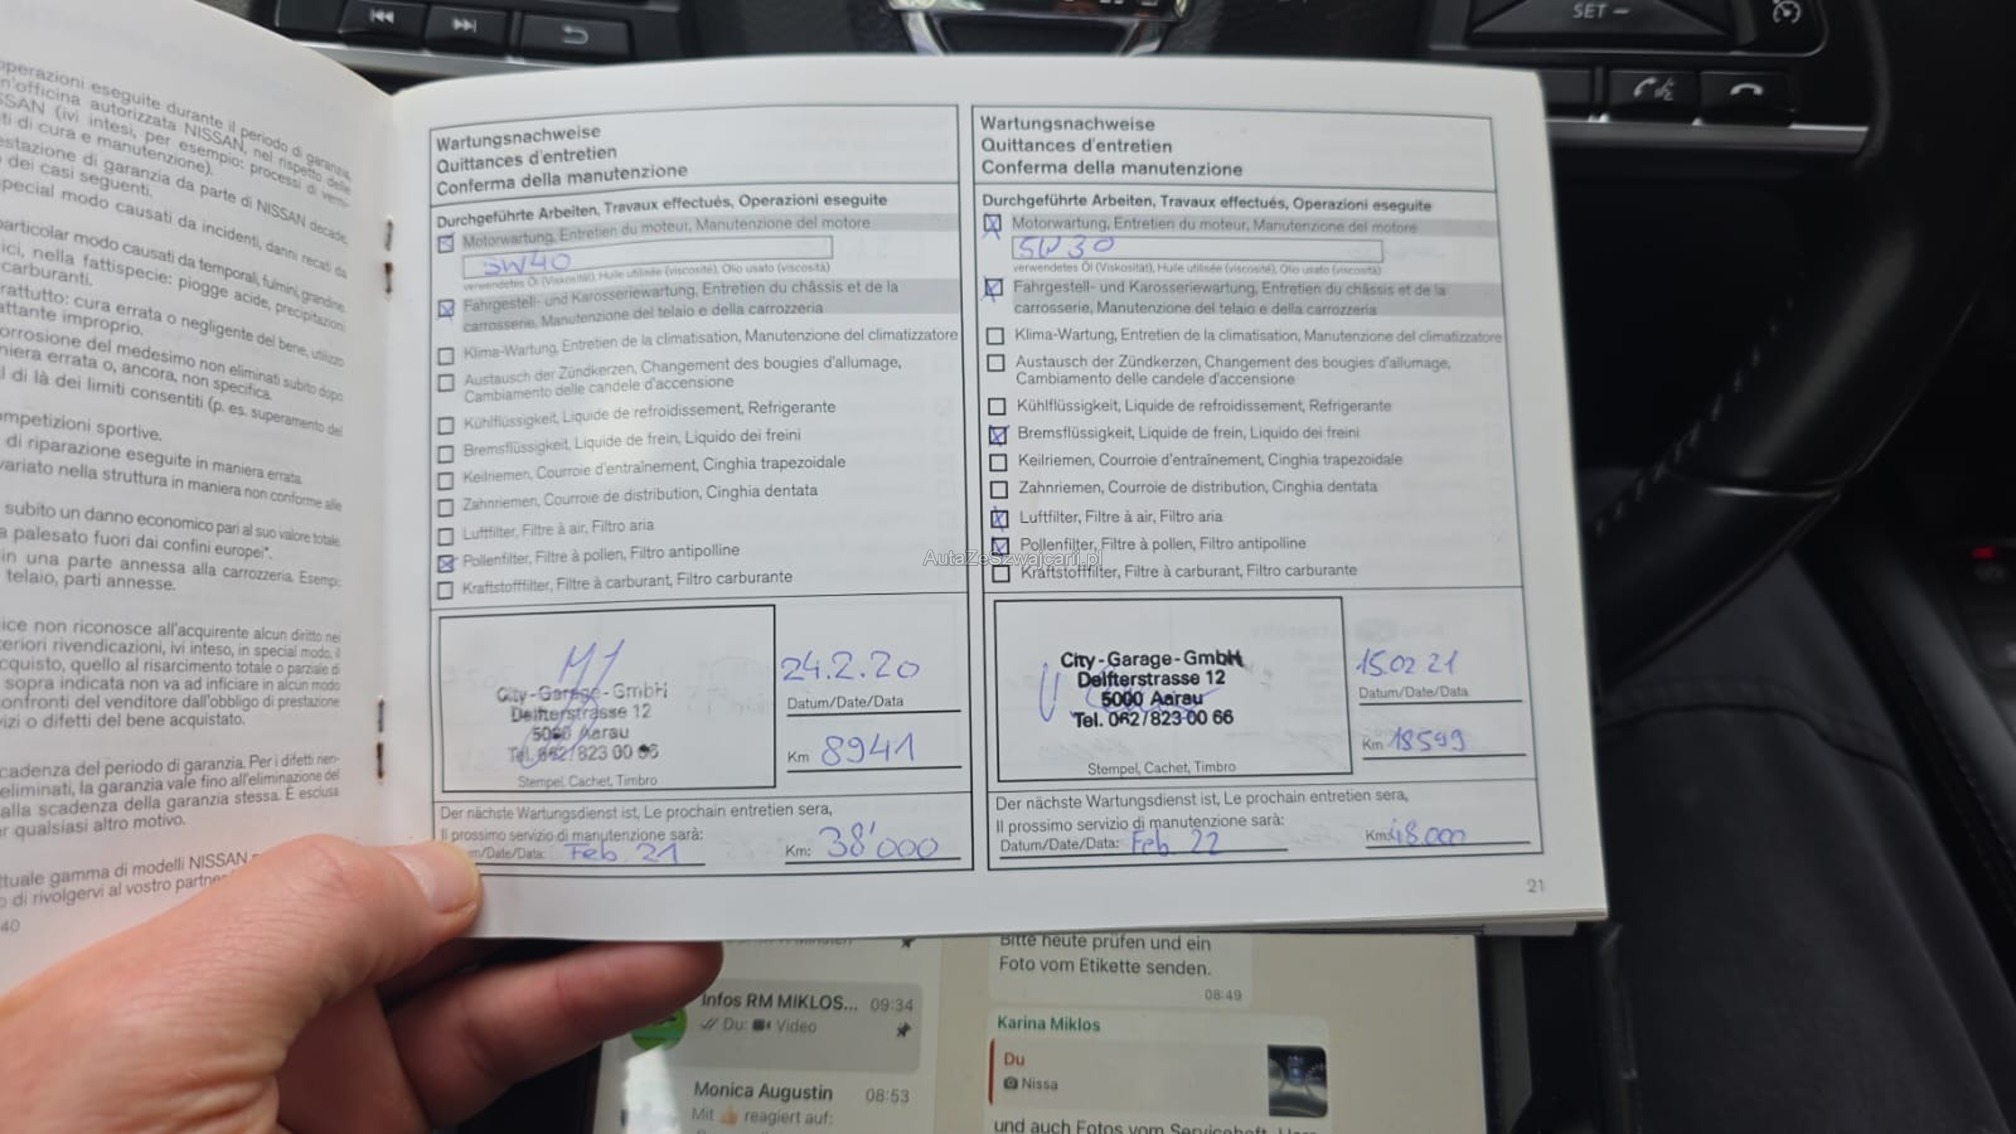 SET –
operazioni eseguite durante il periodo di garanzia,
n'officina autorizzata NISSAN, nel rispetto delle
SSAN (ivi intesi, per esempio: processi di verni-
ti di cura e manutenzione).
estazione di garanzia da parte di NISSAN decade,
dei casi seguenti.
special modo causati da incidenti, danni recati da
particolar modo causati da temporali, fulmini, grandine
ici, nella fattispecie: piogge acide, precipitazioni
carburanti.
rattutto: cura errata o negligente del bene, utilizzo
ttante improprio.
orrosione del medesimo non eliminati subito dopo
niera errata o, ancora, non specifica.
l di là dei limiti consentiti (p. es. superamento del
mpetizioni sportive.
di riparazione eseguite in maniera errata.
variato nella struttura in maniera non conforme alle
subito un danno economico pari al suo valore totale.
a palesato fuori dai confini europei*.
in una parte annessa alla carrozzeria. Esemp:
telaio, parti annesse.
ice non riconosce all'acquirente alcun diritto nei
eriori rivendicazioni, ivi inteso, in special modo, il
cquisto, quello al risarcimento totale o parziale di
sopra indicata non va ad inficiare in alcun modo
onfronti del venditore dall'obbligo di prestazione
vizi o difetti del bene acquistato.
cadenza del periodo di garanzia. Per i difetti rien-
eliminati, la garanzia vale fino all'eliminazione del
alla scadenza della garanzia stessa. È esclusa
r qualsiasi altro motivo.
ttuale gamma di modelli NISSAN
o di rivolgervi al vostro partne
40
Wartungsnachweise
Quittances d'entretien
Conferma della manutenzione
Durchgeführte Arbeiten, Travaux effectués, Operazioni eseguite
Motorwartung, Entretien du moteur, Manutenzione del motore
5W40
verwendetes Öl (Viskosität), Huile utilisée (viscosité), Olio usato (viscosità)
Fahrgestell- und Karosseriewartung, Entretien du châssis et de la
carrosserie, Manutenzione del telaio e della carrozzeria
Klima-Wartung, Entretien de la climatisation, Manutenzione del climatizzatore
Austausch der Zündkerzen, Changement des bougies d'allumage,
Cambiamento delle candele d'accensione
Kühlflüssigkeit, Liquide de refroidissement, Refrigerante
Bremsflüssigkeit, Liquide de frein, Liquido dei freini
Keilriemen, Courroie d'entraînement, Cinghia trapezoidale
Zahnriemen, Courroie de distribution, Cinghia dentata
Luftfilter, Filtre à air, Filtro aria
Pollenfilter, Filtre à pollen, Filtro antipolline
Kraftstofffilter, Filtre à carburant, Filtro carburante
City-Garage-GmbH
Delfterstrasse 12
5000 Aarau
Tel. 062/823 00 66
Stempel, Cachet, Timbro
24.2.20
Datum/Date/Data
Km 8941
Der nächste Wartungsdienst ist, Le prochain entretien sera,
Il prossimo servizio di manutenzione sarà:
m/Date/Data: Feb 21 Km: 38'000
Wartungsnachweise
Quittances d'entretien
Conferma della manutenzione
Durchgeführte Arbeiten, Travaux effectués, Operazioni eseguite
Motorwartung, Entretien du moteur, Manutenzione del motore
5W30
verwendetes Öl (Viskosität), Huile utilisée (viscosité), Olio usato (viscosità)
Fahrgestell- und Karosseriewartung, Entretien du châssis et de la
carrosserie, Manutenzione del telaio e della carrozzeria
Klima-Wartung, Entretien de la climatisation, Manutenzione del climatizzatore
Austausch der Zündkerzen, Changement des bougies d'allumage,
Cambiamento delle candele d'accensione
Kühlflüssigkeit, Liquide de refroidissement, Refrigerante
Bremsflüssigkeit, Liquide de frein, Liquido dei freini
Keilriemen, Courroie d'entraînement, Cinghia trapezoidale
Zahnriemen, Courroie de distribution, Cinghia dentata
Luftfilter, Filtre à air, Filtro aria
Pollenfilter, Filtre à pollen, Filtro antipolline
Kraftstofffilter, Filtre à carburant, Filtro carburante
City-Garage-GmbH
Delfterstrasse 12
5000 Aarau
Tel. 062/823 00 66
Stempel, Cachet, Timbro
15.02 21
Datum/Date/Data
Km 18599
Der nächste Wartungsdienst ist, Le prochain entretien sera,
Il prossimo servizio di manutenzione sarà:
Datum/Date/Data: Feb 22 Km: 48.000
21
AutaZeSzwajcarii.pl
Infos RM MIKLOS... 09:34
Du: Video
Monica Augustin 08:53
Mit 👍 reagiert auf:
Bitte heute prüfen und ein
Foto vom Etikette senden.
08:49
Karina Miklos
Du
Nissa
und auch Fotos vom Serviceheft.